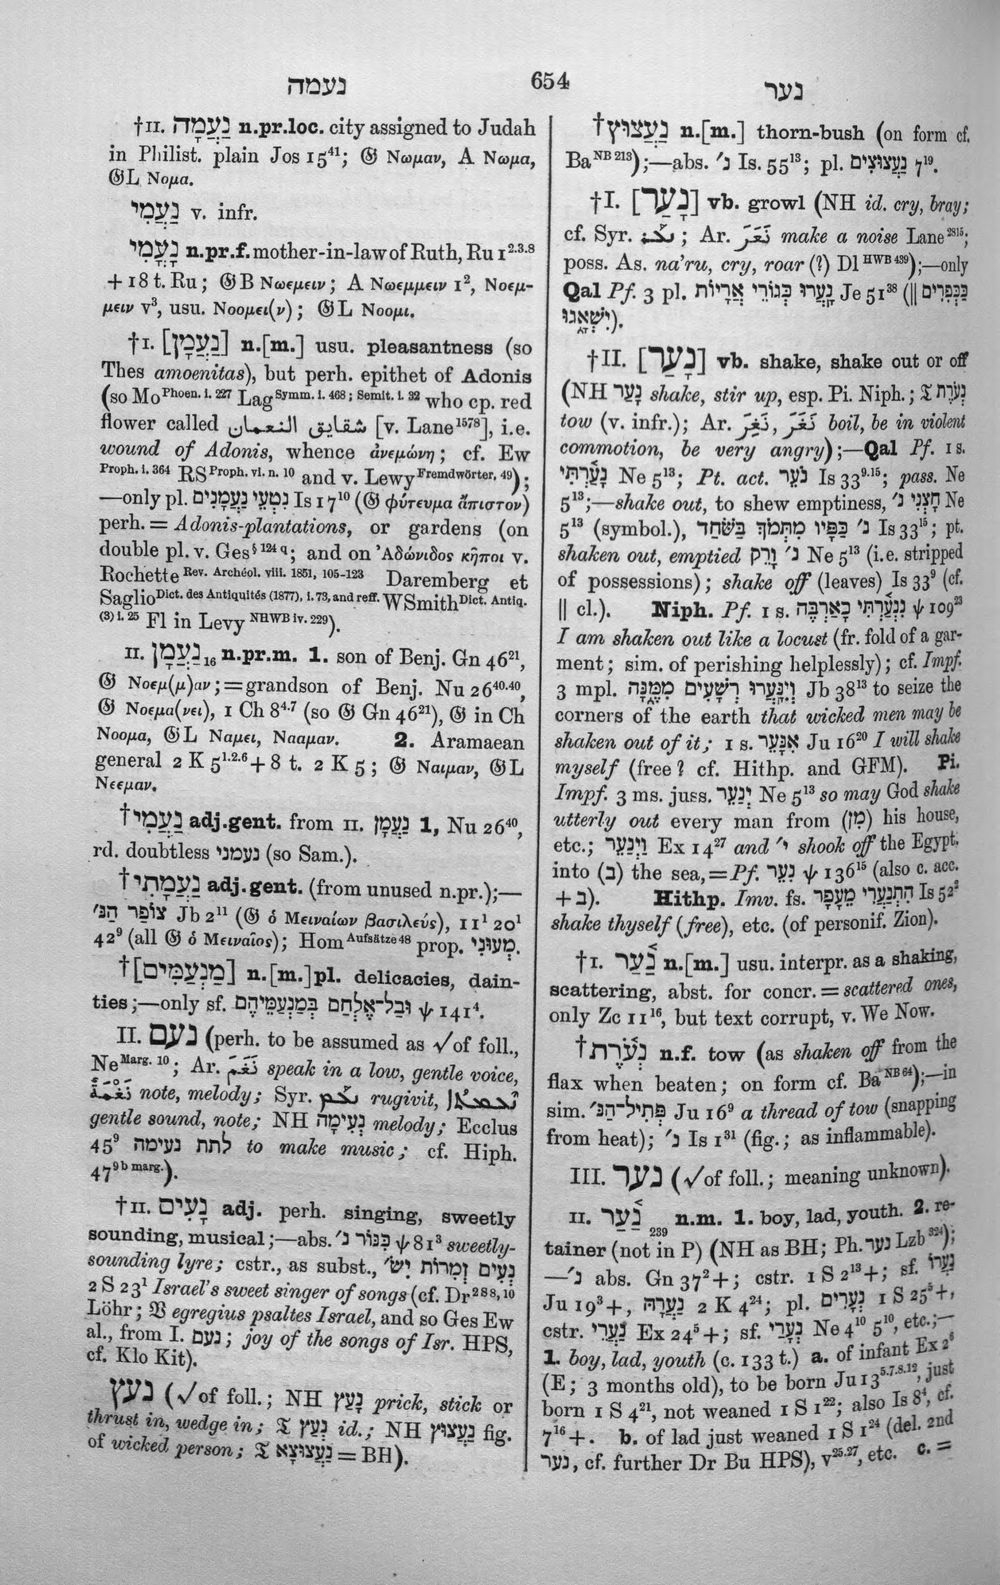 נעמה
654
נער
†II. נַעֲמָה n.pr.loc. city assigned to Judah
in Philist. plain Jos 15⁴¹; 𝔊 Νωμαν, A Νωμα,
𝔊L Νομα.
נַעֲמִי v. infr.
נָעֳמִי n.pr.f. mother-in-law of Ruth, Ru 1²·³·⁸
+ 18 t. Ru; 𝔊B Νωεμειν; A Νωεμμειν 1², Νοεμ-
μειν v³, usu. Νοομει(ν); 𝔊L Νοομι.
†I. [נַעֲמָן] n.[m.] usu. pleasantness (so
Thes amoenitas), but perh. epithet of Adonis
(so Mo Phoen. i. 227 Lag Symm. i. 468; Semit. i. 32 who cp. red
flower called شقايق النعمان [v. Lane¹⁵⁷⁸], i.e.
wound of Adonis, whence ἀνεμώνη; cf. Ew
Proph. i. 364 RS Proph. vi. n. 10 and v. Lewy Fremdwörter, 49);
—only pl. נִטְעֵי נַעֲמָנִים Is 17¹⁰ (𝔊 φύτευμα ἄπιστον)
perh. = Adonis-plantations, or gardens (on
double pl. v. Ges§ 124 q; and on Ἀδώνιδος κῆποι v.
Rochette Rev. Archéol. viii. 1851, 105-123 Daremberg et
Saglio Dict. des Antiquités (1877), i. 73, and reff. WSmith Dict. Antiq.
(3) i. 25 Fl in Levy NHWB iv. 229).
II. נַעֲמָן 16 n.pr.m. 1. son of Benj. Gn 46²¹,
𝔊 Νοεμ(μ)αν; = grandson of Benj. Nu 26⁴⁰·⁴⁰,
𝔊 Νοεμα(νει), 1 Ch 8⁴·⁷ (so 𝔊 Gn 46²¹), 𝔊 in Ch
Νοομα, 𝔊L Ναμει, Νααμαν. 2. Aramaean
general 2 K 5¹·²·⁶ + 8 t. 2 K 5; 𝔊 Ναιμαν, 𝔊L
Νεεμαν.
†נַעֲמִי adj.gent. from II. נַעֲמָן 1, Nu 26⁴⁰,
rd. doubtless נעמני (so Sam.).
†נַעֲמָתִי adj.gent. (from unused n.pr.);—
צוֹפַר הַנּ׳ Jb 2¹¹ (𝔊 ὁ Μειναίων βασιλεύς), 11¹ 20¹
42⁹ (all 𝔊 ὁ Μειναῖος); Hom Aufsätze 48 prop. מְעוּנִי.
†[מַנְעַמִּים] n.[m.]pl. delicacies, dain-
ties;—only sf. וּבַל־אֶלְחַם בְּמַנְעַמֵּיהֶם ψ 141⁴.
II. נעם (perh. to be assumed as √of foll.,
Ne Marg. 10; Ar. نَغَمَ speak in a low, gentle voice,
نَغْمَةٌ note, melody; Syr. rugivit,
gentle sound, note; NH נְעִימָה melody; Ecclus
45⁹ לתת נעימה to make music; cf. Hiph.
47⁹ᵇ marg.).
†II. נָעִים adj. perh. singing, sweetly
sounding, musical;—abs. כִּנּוֹר נ׳ ψ 81³ sweetly-
sounding lyre; cstr., as subst., נְעִים זְמִרוֹת יִשׂ׳
2 S 23¹ Israel's sweet singer of songs (cf. Dr 288, 10
Löhr; 𝔙 egregius psaltes Israel, and so Ges Ew
al., from I. נעם; joy of the songs of Isr. HPS,
cf. Klo Kit).
נעץ (√of foll.; NH נָעַץ prick, stick or
thrust in, wedge in; 𝔗 נְעַץ id.; NH נַעֲצוּץ fig.
of wicked person; 𝔗 נַעֲצוּצָא = BH).
†נַעֲצוּץ n.[m.] thorn-bush (on form cf.
Ba NB 213);—abs. נ׳ Is. 55¹³; pl. נַעֲצוּצִים 7¹⁹.
†I. [נָעַר] vb. growl (NH id. cry, bray;
cf. Syr. ; Ar. نَعَرَ make a noise Lane²⁸¹⁵;
poss. As. na'ru, cry, roar (?) Dl HWB 439);—only
Qal Pf. 3 pl. נָעֲרוּ כְּגוֹרֵי אֲרָיוֹת Je 51³⁸ (|| כַּכְּפִרִים
יִשְׁאָגוּ).
†II. [נָעַר] vb. shake, shake out or off
(NH נָעַר shake, stir up, esp. Pi. Niph.; 𝔗 נְעֹרֶת
tow (v. infr.); Ar. نَغَرَ, نَغِرَ boil, be in violent
commotion, be very angry);—Qal Pf. 1 s.
נָעַרְתִּי Ne 5¹³; Pt. act. נֹעֵר Is 33⁹·¹⁵; pass. Ne
5¹³;—shake out, to shew emptiness, חָצְנִי נ׳ Ne
5¹³ (symbol.), נ׳ כַּפָּיו מִתְּמֹךְ בַּשֹּׁחַד Is 33¹⁵; pt.
shaken out, emptied נ׳ וָרֵק Ne 5¹³ (i.e. stripped
of possessions); shake off (leaves) Is 33⁹ (cf.
|| cl.). Niph. Pf. 1 s. נִנְעַרְתִּי כָּאַרְבֶּה ψ 109²³
I am shaken out like a locust (fr. fold of a gar-
ment; sim. of perishing helplessly); cf. Impf.
3 mpl. וְיִנָּעֲרוּ רְשָׁעִים מִמֶּנָּה Jb 38¹³ to seize the
corners of the earth that wicked men may be
shaken out of it; 1 s. אִנָּעֵר Ju 16²⁰ I will shake
myself (free? cf. Hithp. and GFM). Pi.
Impf. 3 ms. juss. יְנַעֵר Ne 5¹³ so may God shake
utterly out every man from (מִן) his house,
etc.; וַיְנַעֵר Ex 14²⁷ and י׳ shook off the Egypt.
into (בְּ) the sea, = Pf. נִעֵר ψ 136¹⁵ (also c. acc.
+ בְּ). Hithp. Imv. fs. הִתְנַעֲרִי מֵעָפָר Is 52²
shake thyself (free), etc. (of personif. Zion).
†I. נַעַר n.[m.] usu. interpr. as a shaking,
scattering, abst. for concr. = scattered ones,
only Zc 11¹⁶, but text corrupt, v. We Now.
†נְעֹרֶת n.f. tow (as shaken off from the
flax when beaten; on form cf. Ba NB 64);—in
sim. פְּתִיל־הַנּ׳ Ju 16⁹ a thread of tow (snapping
from heat); נ׳ Is 1³¹ (fig.; as inflammable).
III. נער (√of foll.; meaning unknown).
II. נַעַר 239 n.m. 1. boy, lad, youth. 2. re-
tainer (not in P) (NH as BH; Ph. נער Lzb 324);
—נ׳ abs. Gn 37²+; cstr. 1 S 2¹³+; sf. נַעֲרוֹ
Ju 19³+, נַעֲרָהּ 2 K 4²⁴; pl. נְעָרִים 1 S 25⁵+,
cstr. נַעֲרֵי Ex 24⁵+; sf. נְעָרַי Ne 4¹⁰ 5¹⁰, etc.;—
1. boy, lad, youth (c. 133 t.) a. of infant Ex 2⁶
(E; 3 months old), to be born Ju 13⁵·⁷·⁸·¹², just
born 1 S 4²¹, not weaned 1 S 1²²; also Is 8⁴, cf.
7¹⁶+. b. of lad just weaned 1 S 1²⁴ (del. 2nd
נער, cf. further Dr Bu HPS), v²⁵·²⁷, etc. c. =